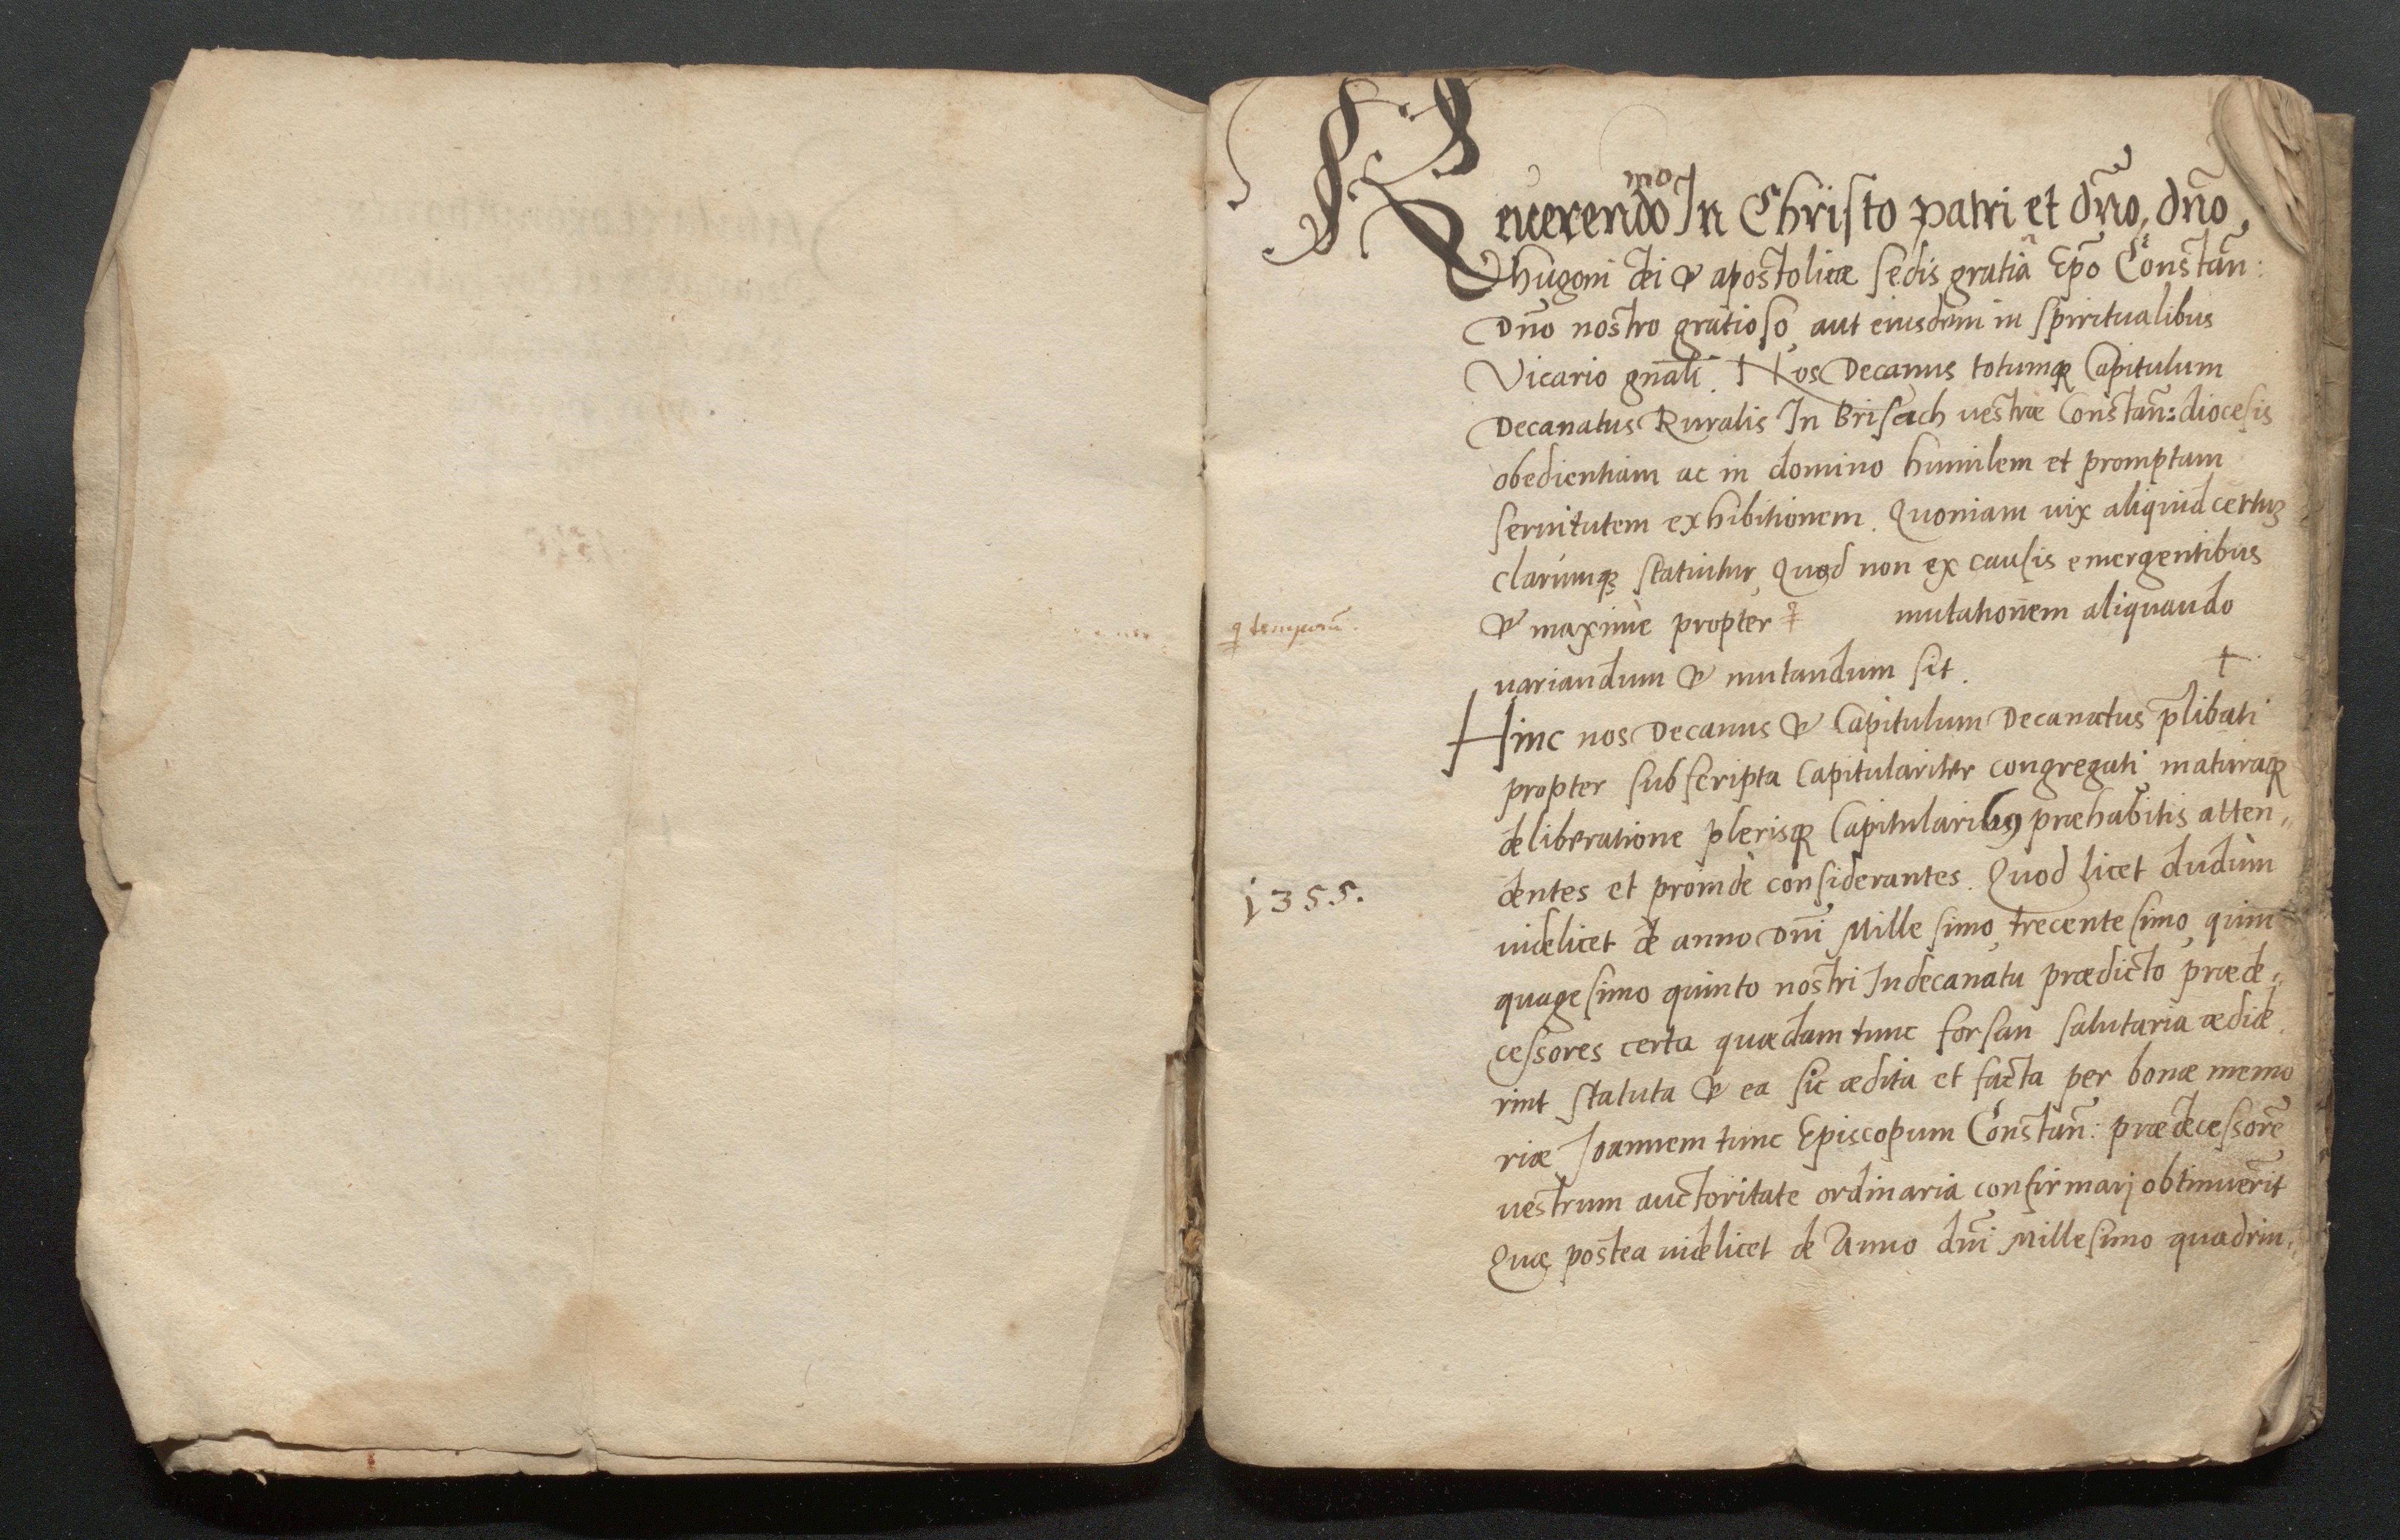 Reverendo mo In Christo patri et dño, dño,
hugoni dei & apostolicæ sedis gratiâ Epõ Constañ:
Dño nostro gratioso aut eiusdem in spiritualibus
Vicario gñali. Nos Decanus totumq Capitulum
Decanatus Ruralis In Brisach vestræ Constañ: diocesis
obedientiam ac in domino humilem et promptam
servitutem exhibitionem. Quoniam vix aliquid certuȝ
clarumq statuitur, Quod non ex causis emergentibus
q temporũ.
& maximè propter mutationem aliquando
variandum & mutandum sit.
Hinc nos Decanus & Capitulum Decanatus p̃libati
propter subscripta Capitulariter congregati maturaq
deliberatione plerisq Capitularibꝯ præhabitis atten„
1355.
dentes et proinde considerantes. Quod licet dudùm
videlicet de anno Dñi Millesimo trecentesimo quin
quagesimo quinto nostri In decanatu prædicto præde„
cessores certa quædam tunc forsan salutaria ædide
rint statuta & ea sic ædita et facta per bonæ memo
riæ Joannem tunc Episcopum Constañ: prædecessorẽ
vestrum auctoritate ordinaria confirmarj obtinuerit
Quæ postea videlicet de Anno dñi Millesimo quadrin„